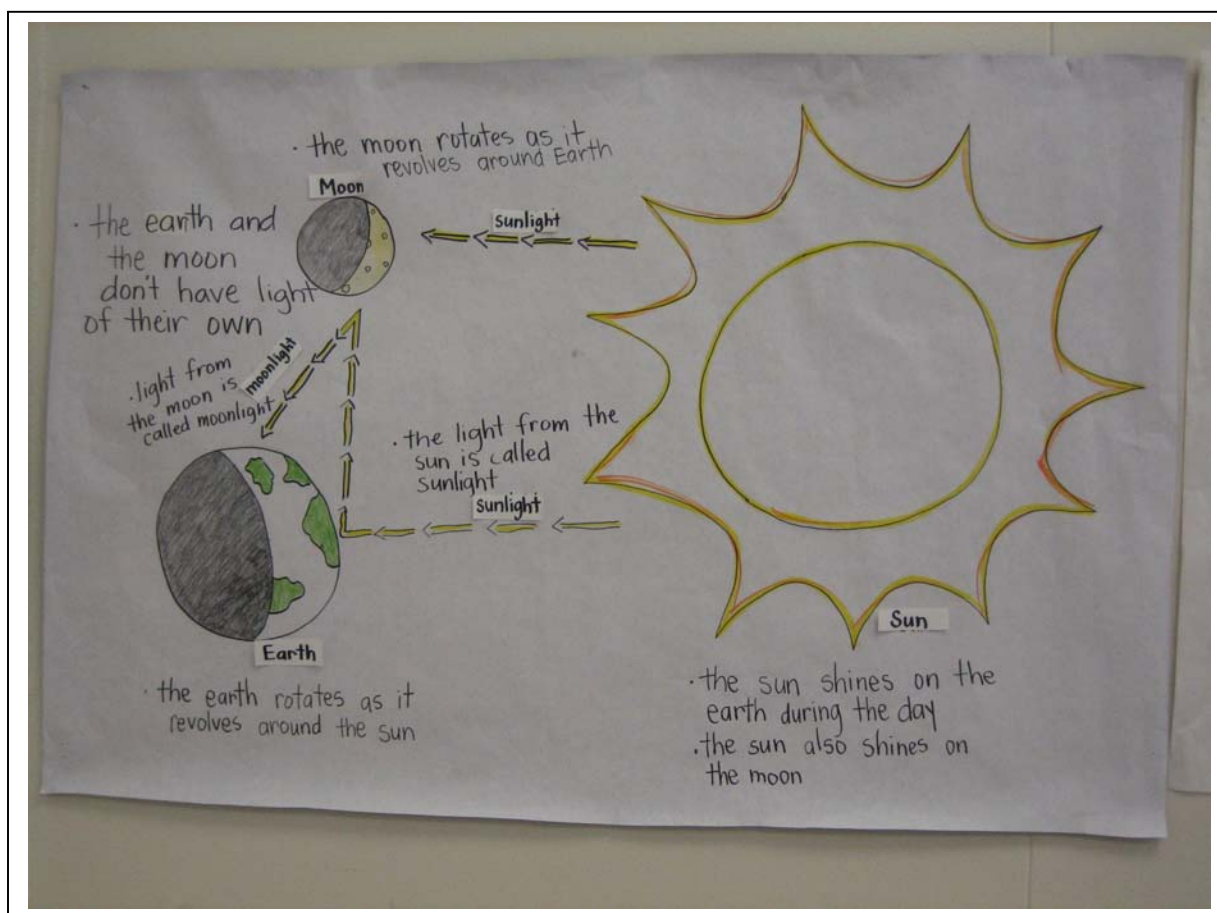 · the moon rotates as it
revolves around Earth
Moon
· the earth and
the moon
don't have light
of their own
sunlight
· light from
the moon is
called moonlight
moonlight
· the light from the
sun is called
sunlight
Sunlight
Earth
· the earth rotates as it
revolves around the sun
Sun
· the sun shines on the
earth during the day
· the sun also shines on
the moon